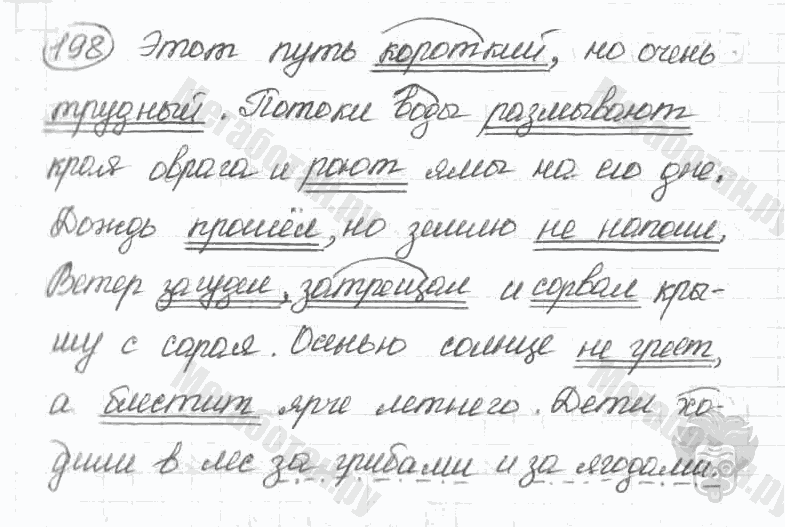 198 Этот путь короткий, но очень
трудный. Потоки воды размывают
края оврага и роют ямы на его дне.
Дождь прошёл, но землю не напоил.
Ветер загудел, затрещал и сорвал кры-
шу с сарая. Осенью солнце не греет,
а блестит ярче летнего. Дети хо-
дили в лес за грибами и за ягодами.
Мегаботан.ру
Мегаботан.ру
Мегаботан.ру
Мегаботан.ру